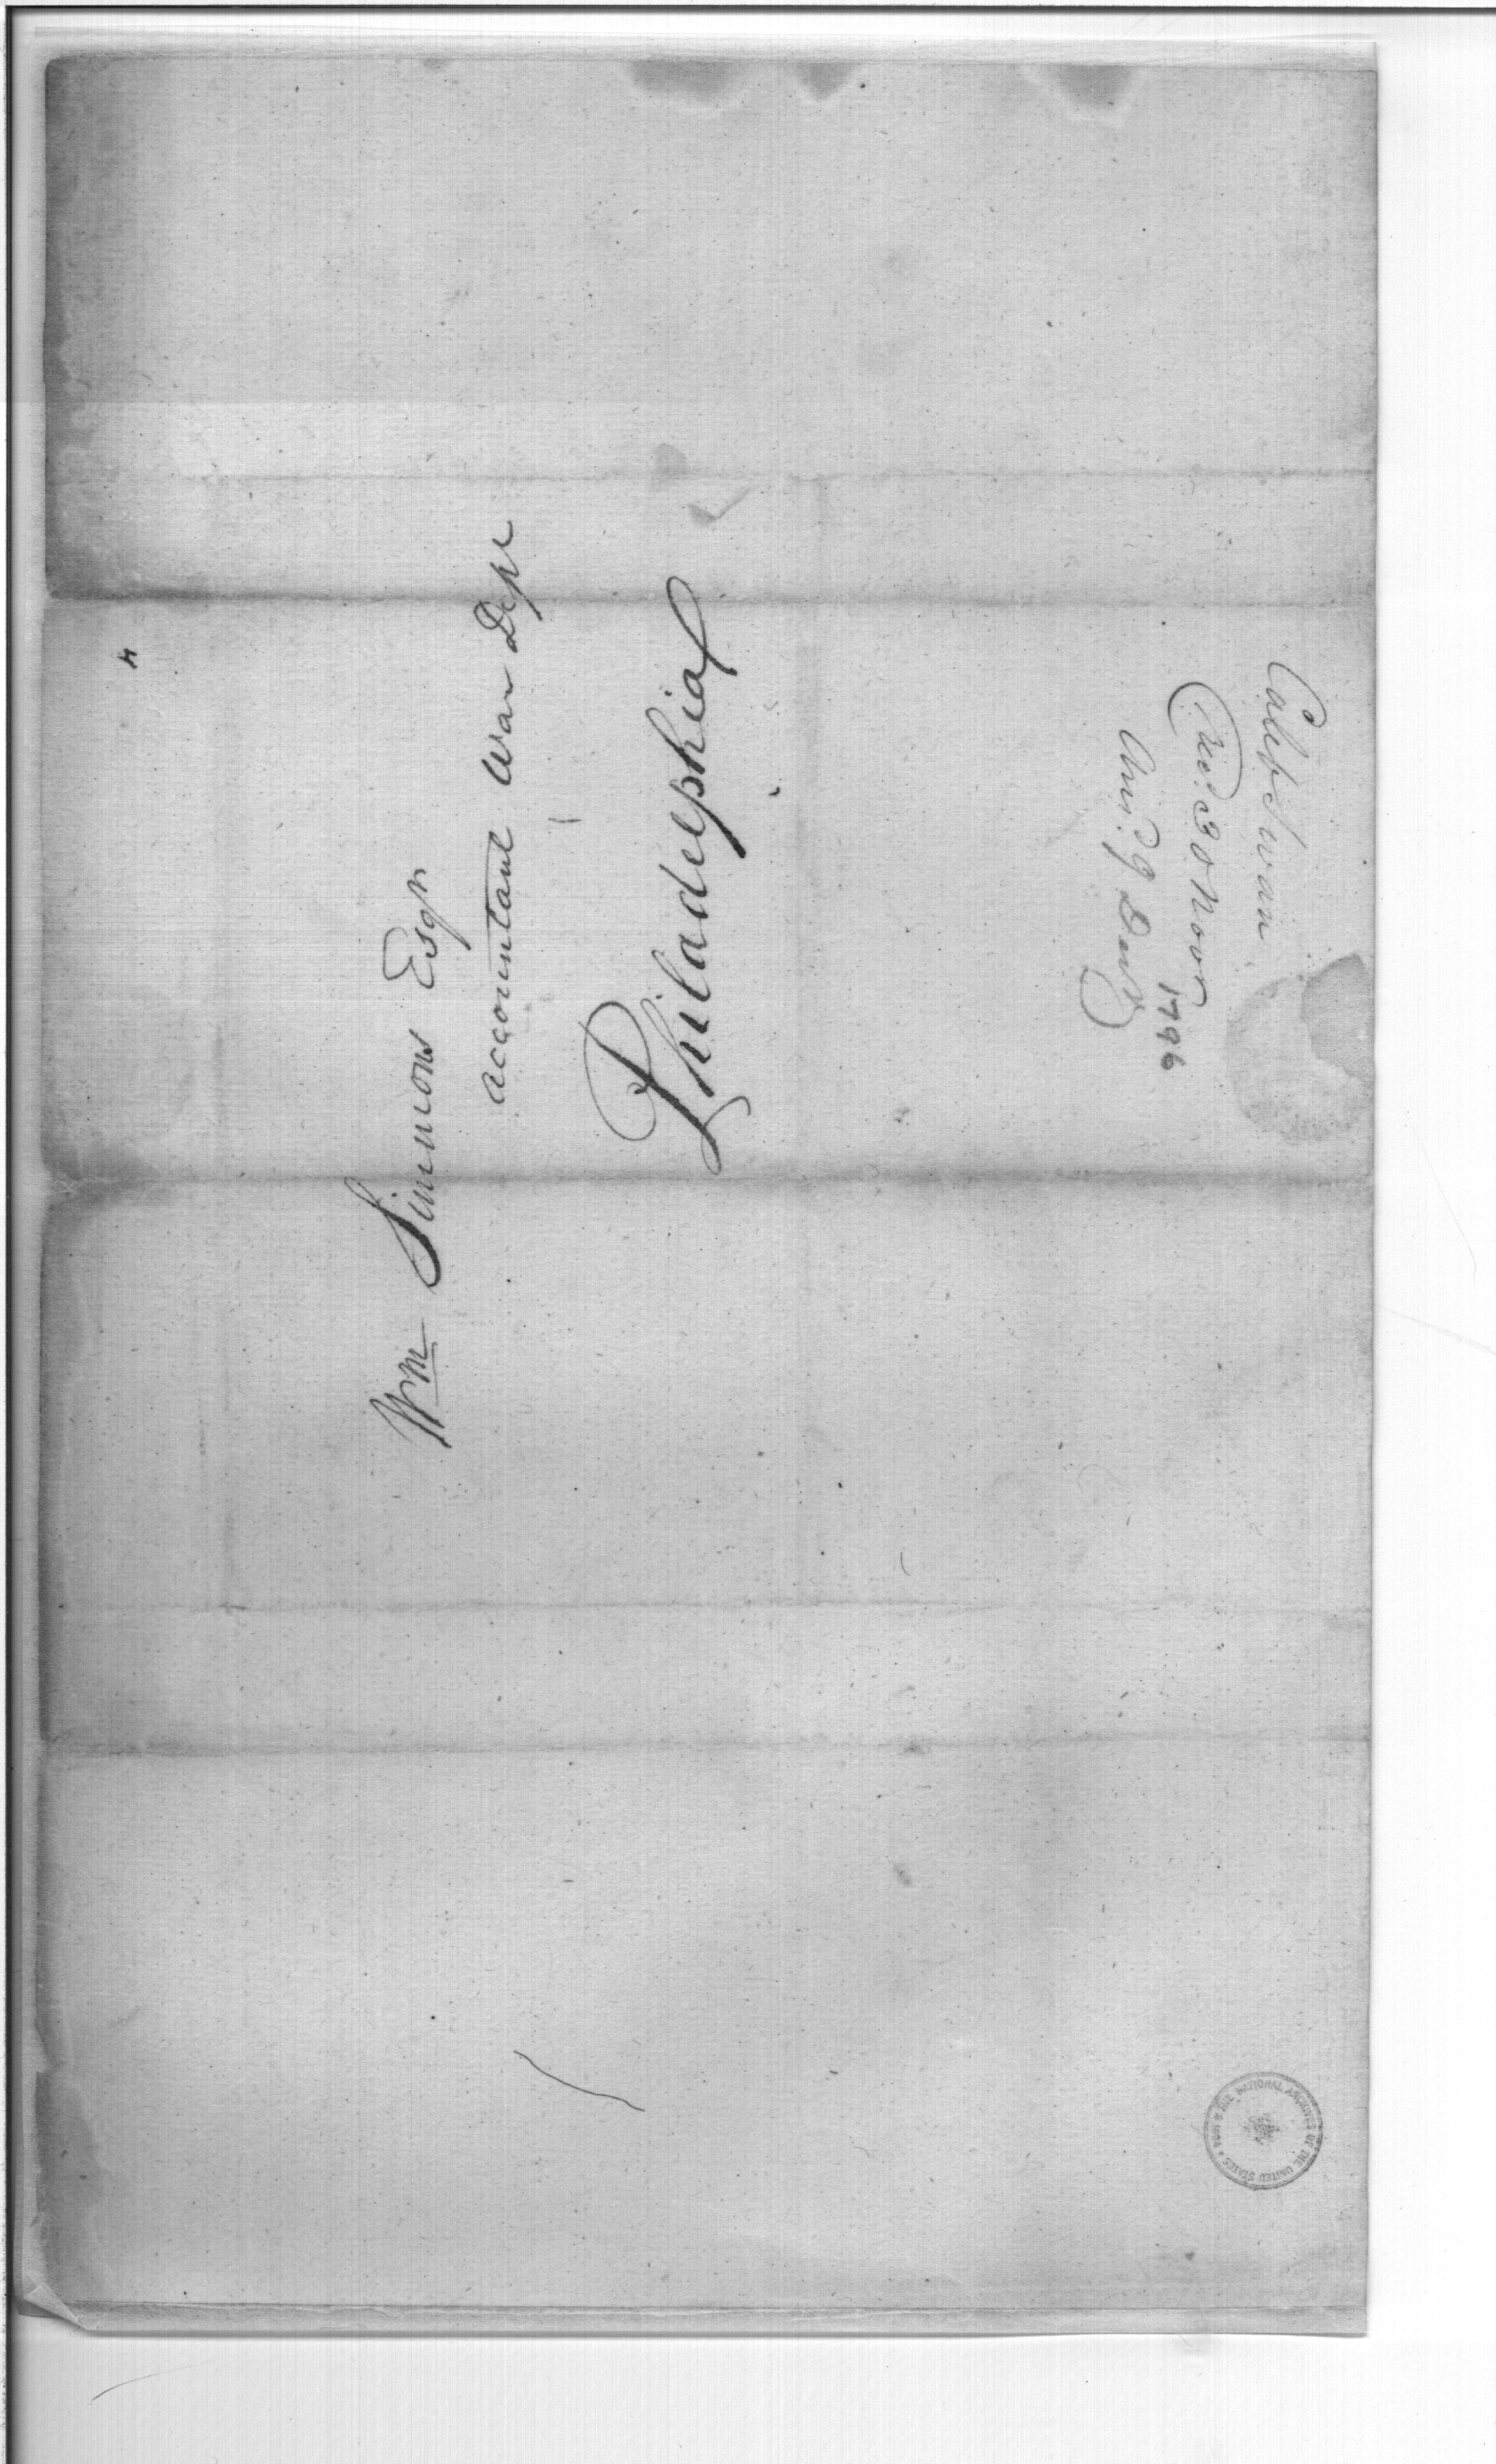 Wm Simmons Esqr
Accountant War Dept
Philadelphia
Caleb Swan
Recd 30 Novr
1796
Ansd 9 Decr
THE NATIONAL ARCHIVES OF THE UNITED STATES